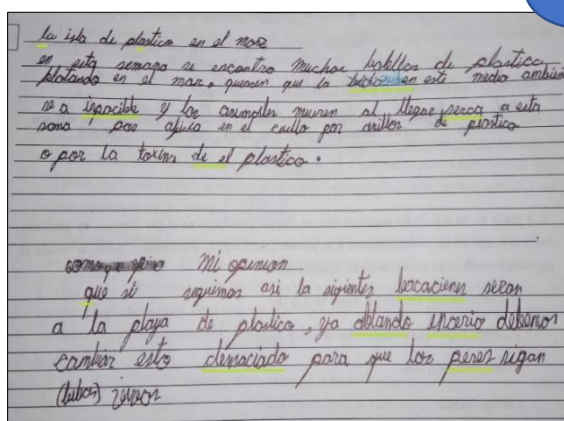 la isla de plastico en el mar
en esta semana se encontro muchas botellas de plastica
plotando en el mar, quieren que la en este medio ambien
se a inpocible y los animalles mueren al llegar serca a esta
sona por aficia en el cuello por anillos de plastico
o por la toxina de el plastico.
mi opinion
que si seguimos asi la sigientes bacaciones seran
a la playa de plastico, ya ablando encerio debemos
cambiar esto demaciado para que los peses sigan
vivos